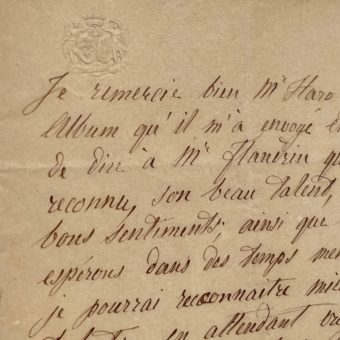 Je remercie bien Mr Haro
Album qu'il m'à envoyé
de dire à Mr Flandrin
reconnu, son beau talent,
bons sentiments; ainsi que
espérons dans des temps
je pourrai reconnaitre
en attendant